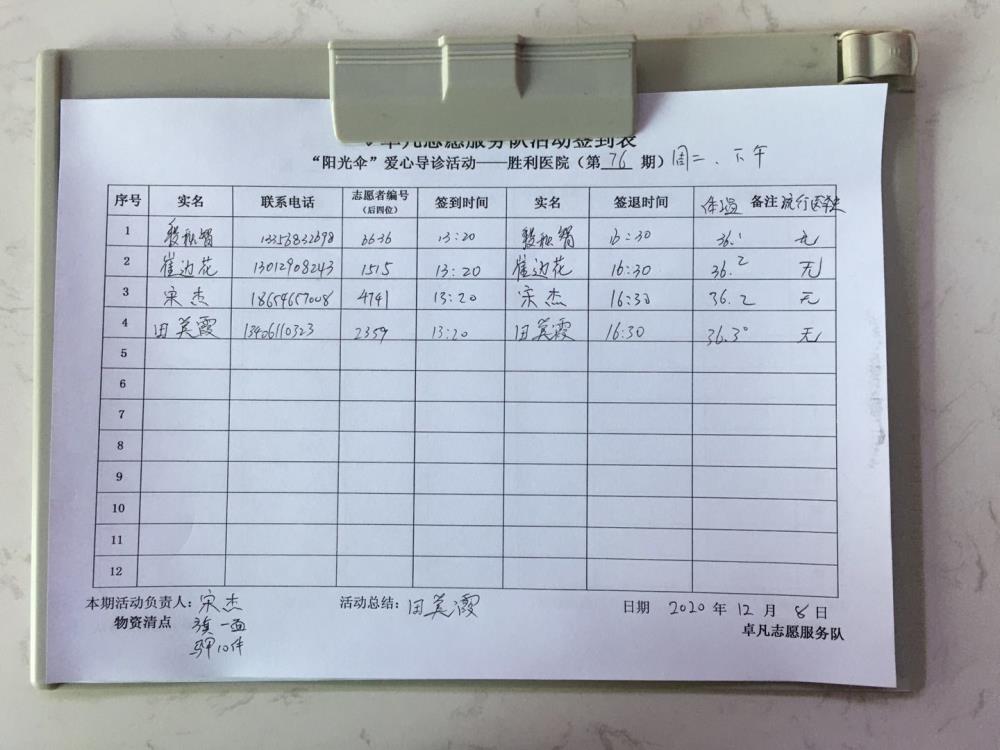 卓凡志愿服务队活动签到表
“阳光伞”爱心导诊活动——胜利医院（第 76 期）周二、下午
序号 实名 联系电话 志愿者编号（后四位） 签到时间 实名 签退时间 体温 备注 流行医学史
1 13356832698 6636 13:20 16:30 36.1 无
2 崔边花 13012908243 1515 13:20 崔边花 16:30 36.2 无
3 宋杰 18654657008 4741 13:20 宋杰 16:30 36.2 无
4 田美霞 13406110323 2359 13:20 田美霞 16:30 36.3° 无
5
6
7
8
9
10
11
12
本期活动负责人：宋杰 活动总结：田美霞 日期 2020 年 12 月 8 日
物资清点 旗一面 卓凡志愿服务队
马甲10件